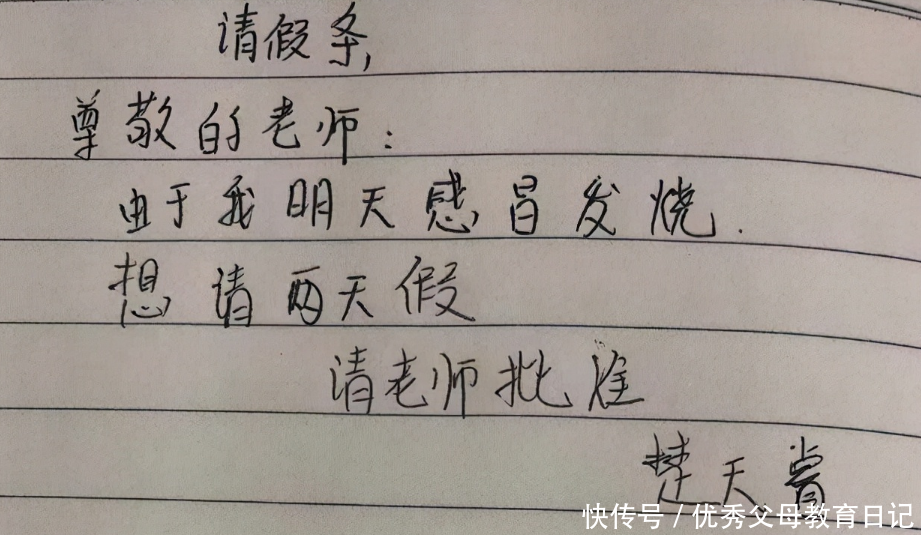 请假条,
尊敬的老师:
由于我明天感冒发烧.
想请两天假
请老师批准
楚天
快传号/优秀父母教育日记